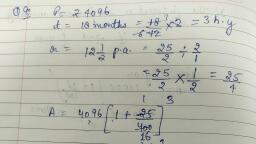 Q9. P = ₹4096
t = 18 months = 18/12 × 2 = 3 h.y
r = 12 1/2 p.a. = 25/2 ÷ 2/1
= 25/2 × 1/2 = 25/4
A = 4096 [1 + 25/400]³
16